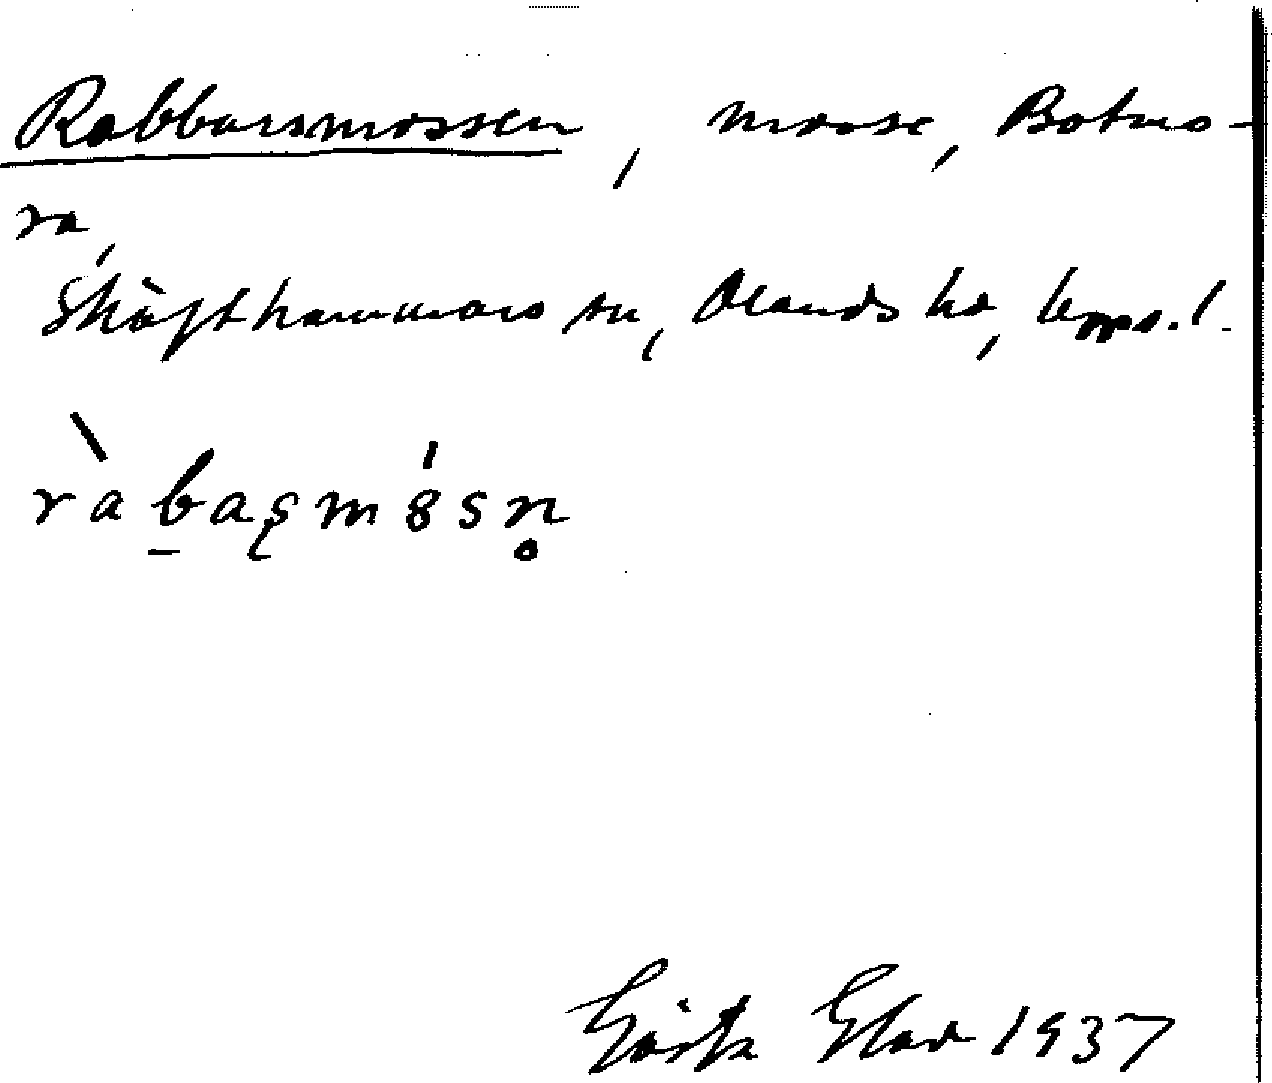 Rabbarsmossen, mosse, Botmo-
ra,
Skäfthammars sn, Olands hd, Upps. l.
ràbaʂmósn̥
Gösta Elov 1937